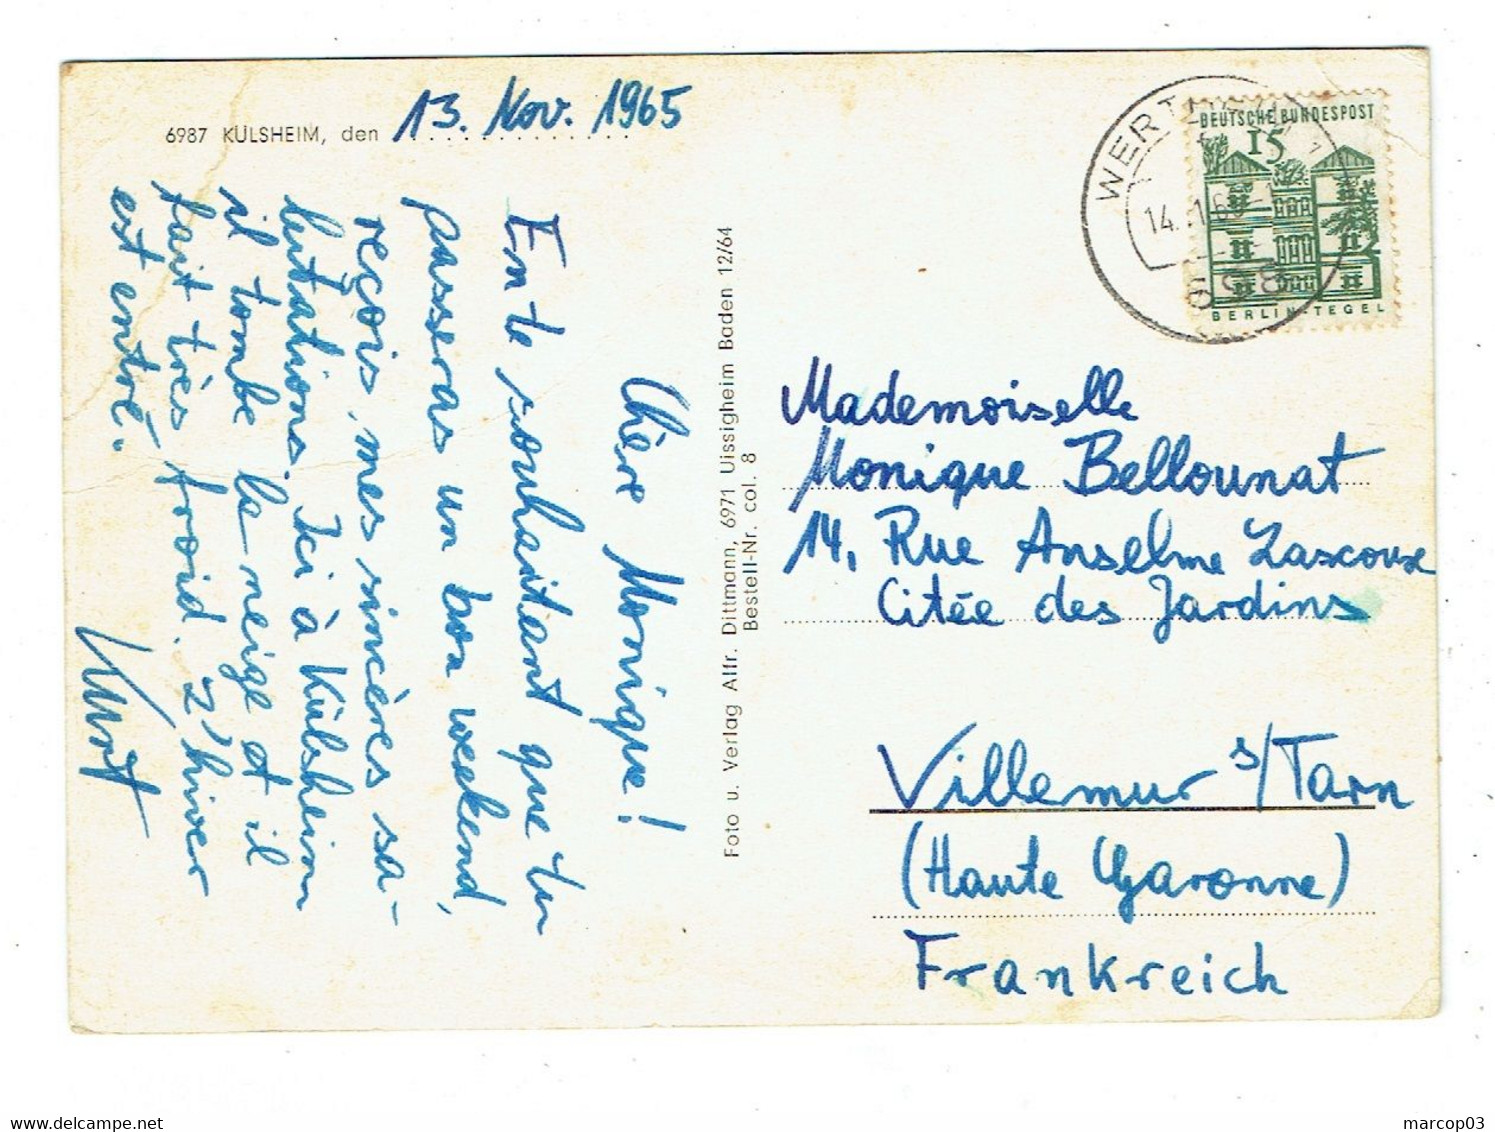 6987 KÜLSHEIM, den 13. Nov. 1965
Chère Monique!
En te souhaitant que tu
passeras un bon weekend,
reçois mes sincères sa-
lutations. Ici à Külsheim
il tombe la neige et il
fait très froid. L'hiver
est entré.
Kurt
Foto u. Verlag Alfr. Dittmann, 6971 Uissigheim Baden 12/64
Bestell-Nr. col. 8
DEUTSCHE BUNDESPOST
15
BERLIN-TEGEL
14.
698
Mademoiselle
Monique Bellounat
14, Rue Anselme Lascoux
Citée des Jardins
Villemur s/Tarn
(Haute Garonne)
Frankreich
marcop03